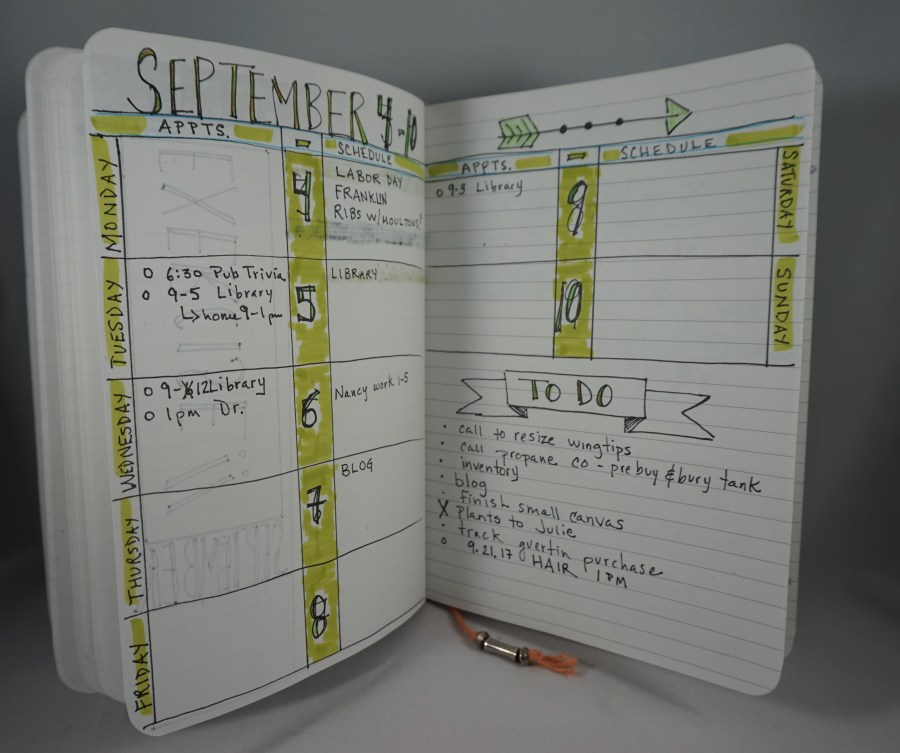 SEPTEMBER 4-10
APPTS.
SCHEDULE
MONDAY
4
LABOR DAY
FRANKLIN
RIBS W/MOULTONS!
TUESDAY
6:30 Pub Trivia
9-5 Library
↳home 9-1pm
5
LIBRARY
WEDNESDAY
9-12 Library
1pm Dr.
6
Nancy work 1-5
THURSDAY
7
BLOG
FRIDAY
8
APPTS.
SCHEDULE
9-3 Library
9
SATURDAY
10
SUNDAY
TO DO
• call to resize wingtips
• call propane co - prebuy & bury tank
• inventory
• blog
• finish small canvas
X Plants to Julie
• track guertin purchase
o 9.21.17 HAIR 1PM